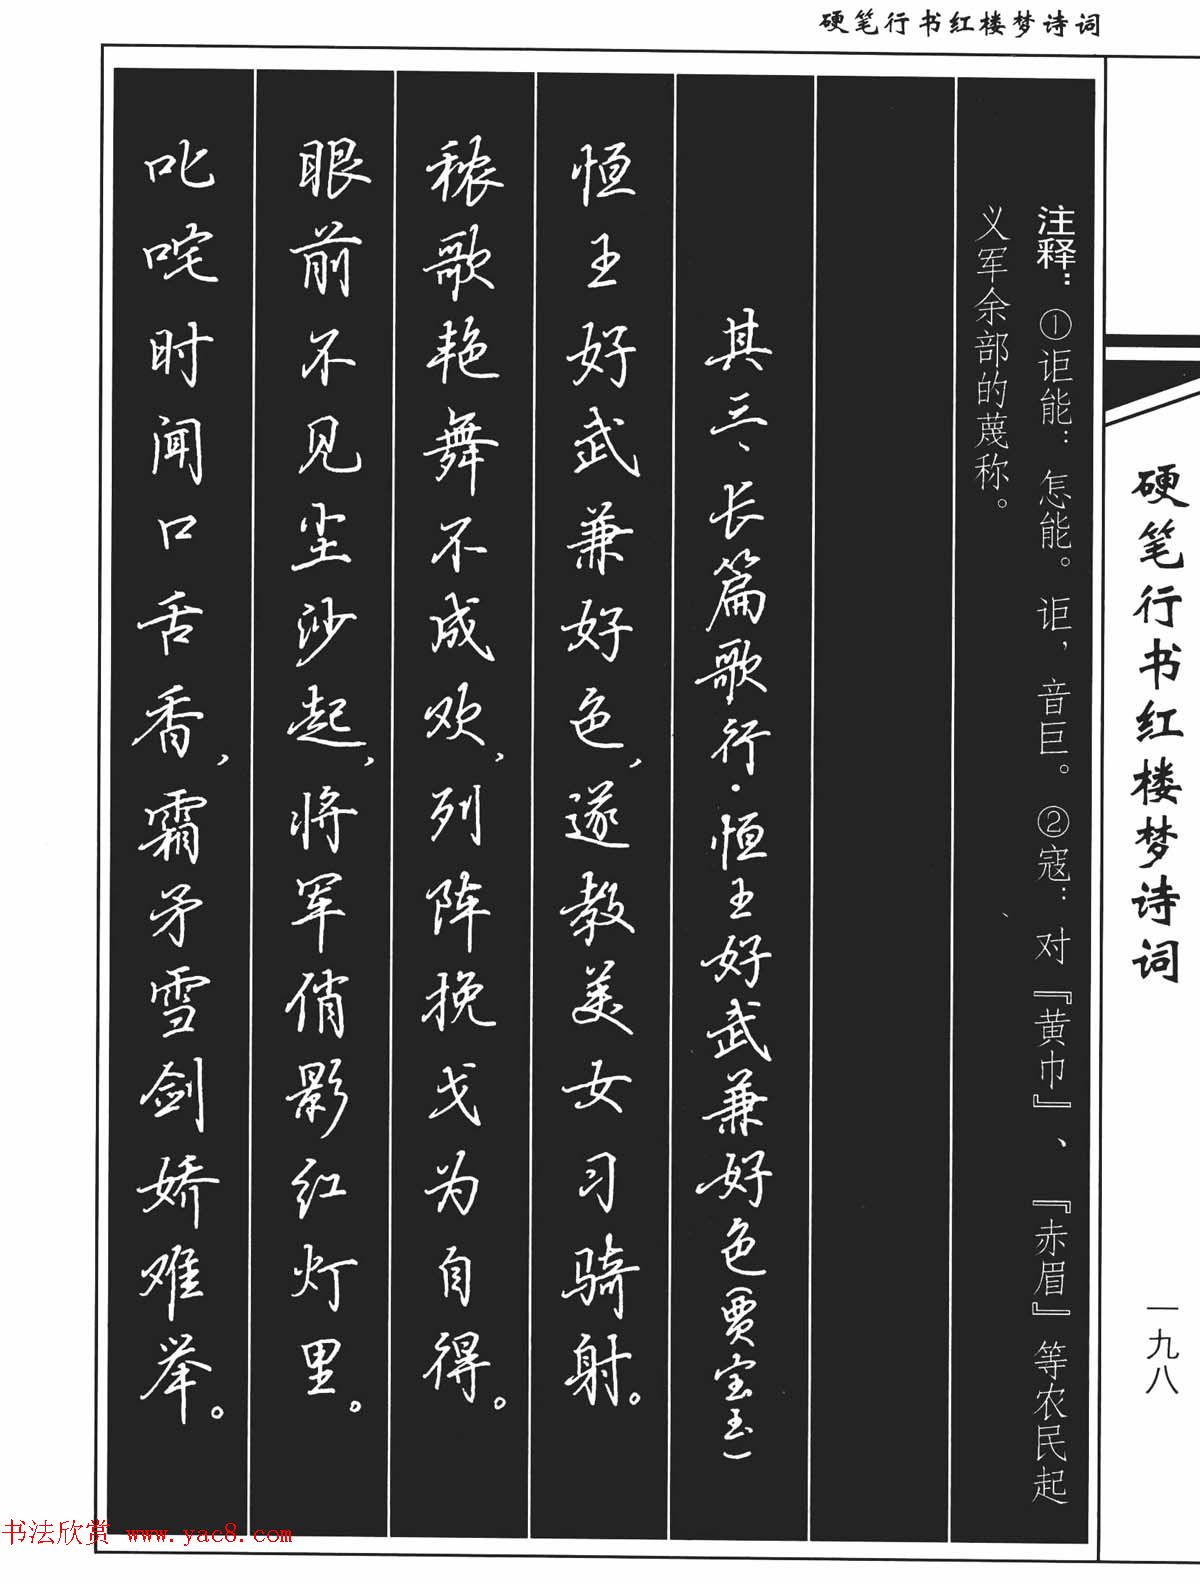 硬笔行书红楼梦诗词
硬笔行书红楼梦诗词
一九八
注释：①讵能：怎能。讵，音巨。②寇：对『黄巾』、『赤眉』等农民起
义军余部的蔑称。
其三、长篇歌行·恒王好武兼好色(贾宝玉)
恒王好武兼好色，遂教美女习骑射。
秾歌艳舞不成欢，列阵挽戈为自得。
眼前不见尘沙起，将军俏影红灯里。
叱咤时闻口舌香，霜矛雪剑娇难举。
书法欣赏 www.yac8.com